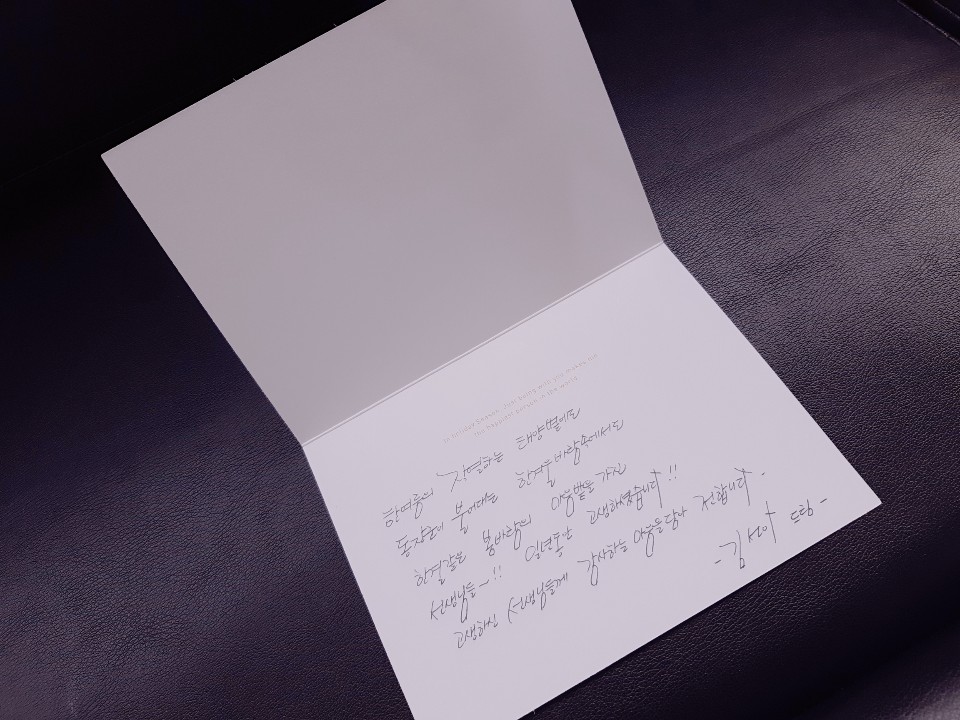 In Holiday Season, Just being with you makes me
the happiest person in the world
한여름의 작열하는 태양볕에도
동장군이 불어대는 한겨울바람속에서도
한결같은 봄바람의 마음밭을 가진
선생님들~!! 일년동안 고생하셨습니다!!
고생하신 선생님들께 감사하는 마음을담아 전합니다.
- 김 드림 -